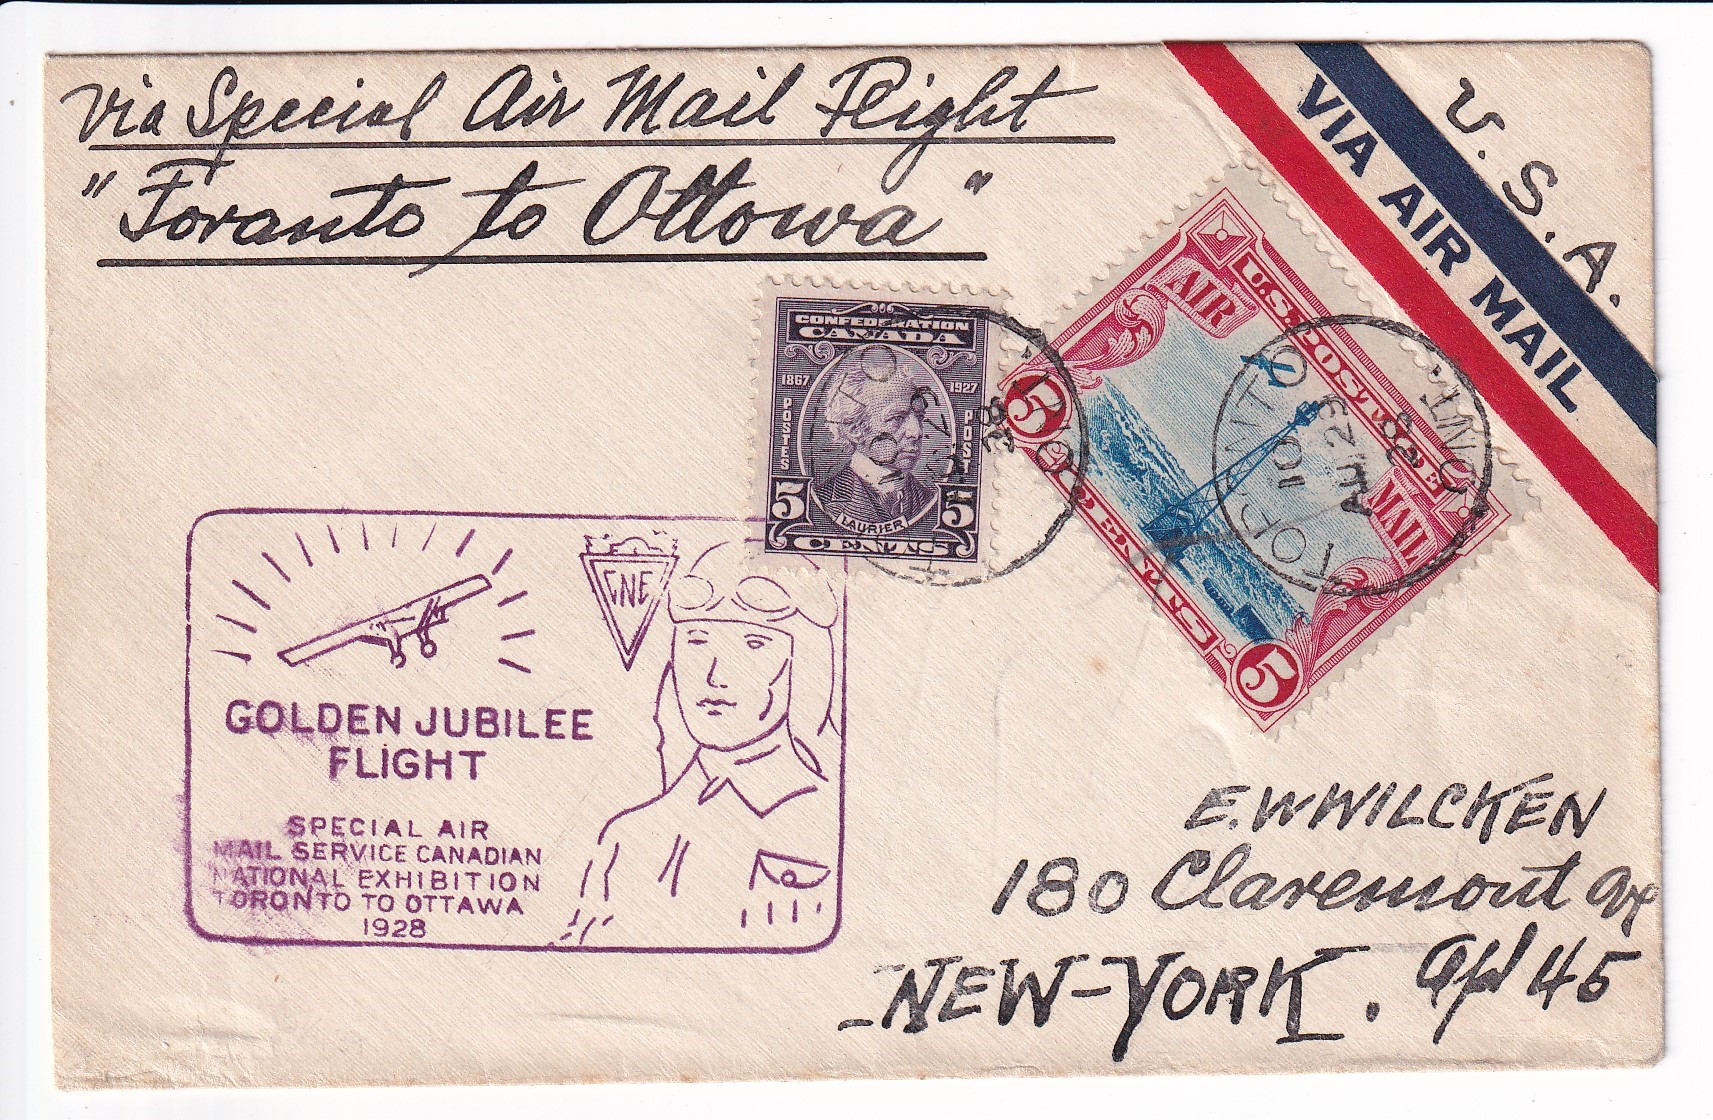 Via Special Air Mail Flight
"Toranto to Ottowa"
U.S.A.
VIA AIR MAIL
CONFEDERATION
CANADA
1867 1927
POSTES POST
LAURIER
5 5
CENTS
U.S. POSTAGE
AIR
MAIL
5 5
TORONTO ONT.
10
AU 23
28
CNE
GOLDEN JUBILEE
FLIGHT
SPECIAL AIR
MAIL SERVICE CANADIAN
NATIONAL EXHIBITION
TORONTO TO OTTAWA
1928
E.W WILCKEN
180 Claremont Ave
NEW-YORK. Apt 45